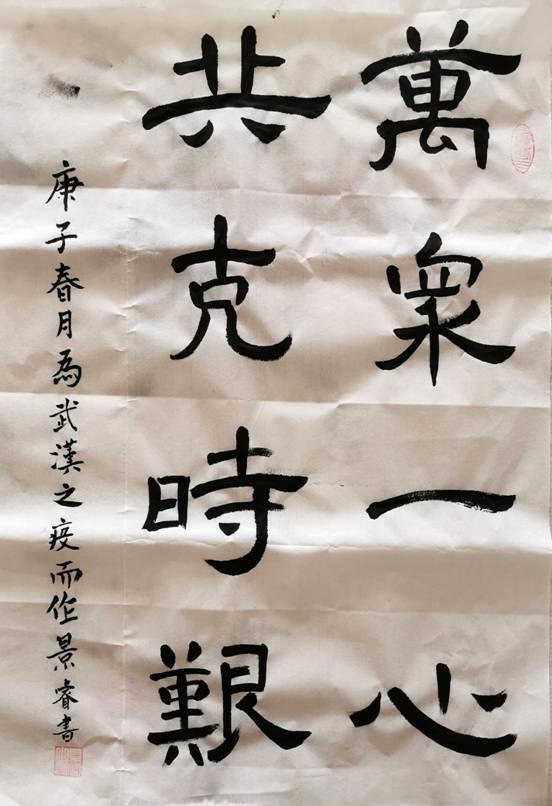 萬眾一心
共克時艱
庚子春月為武漢之疫而作景睿書